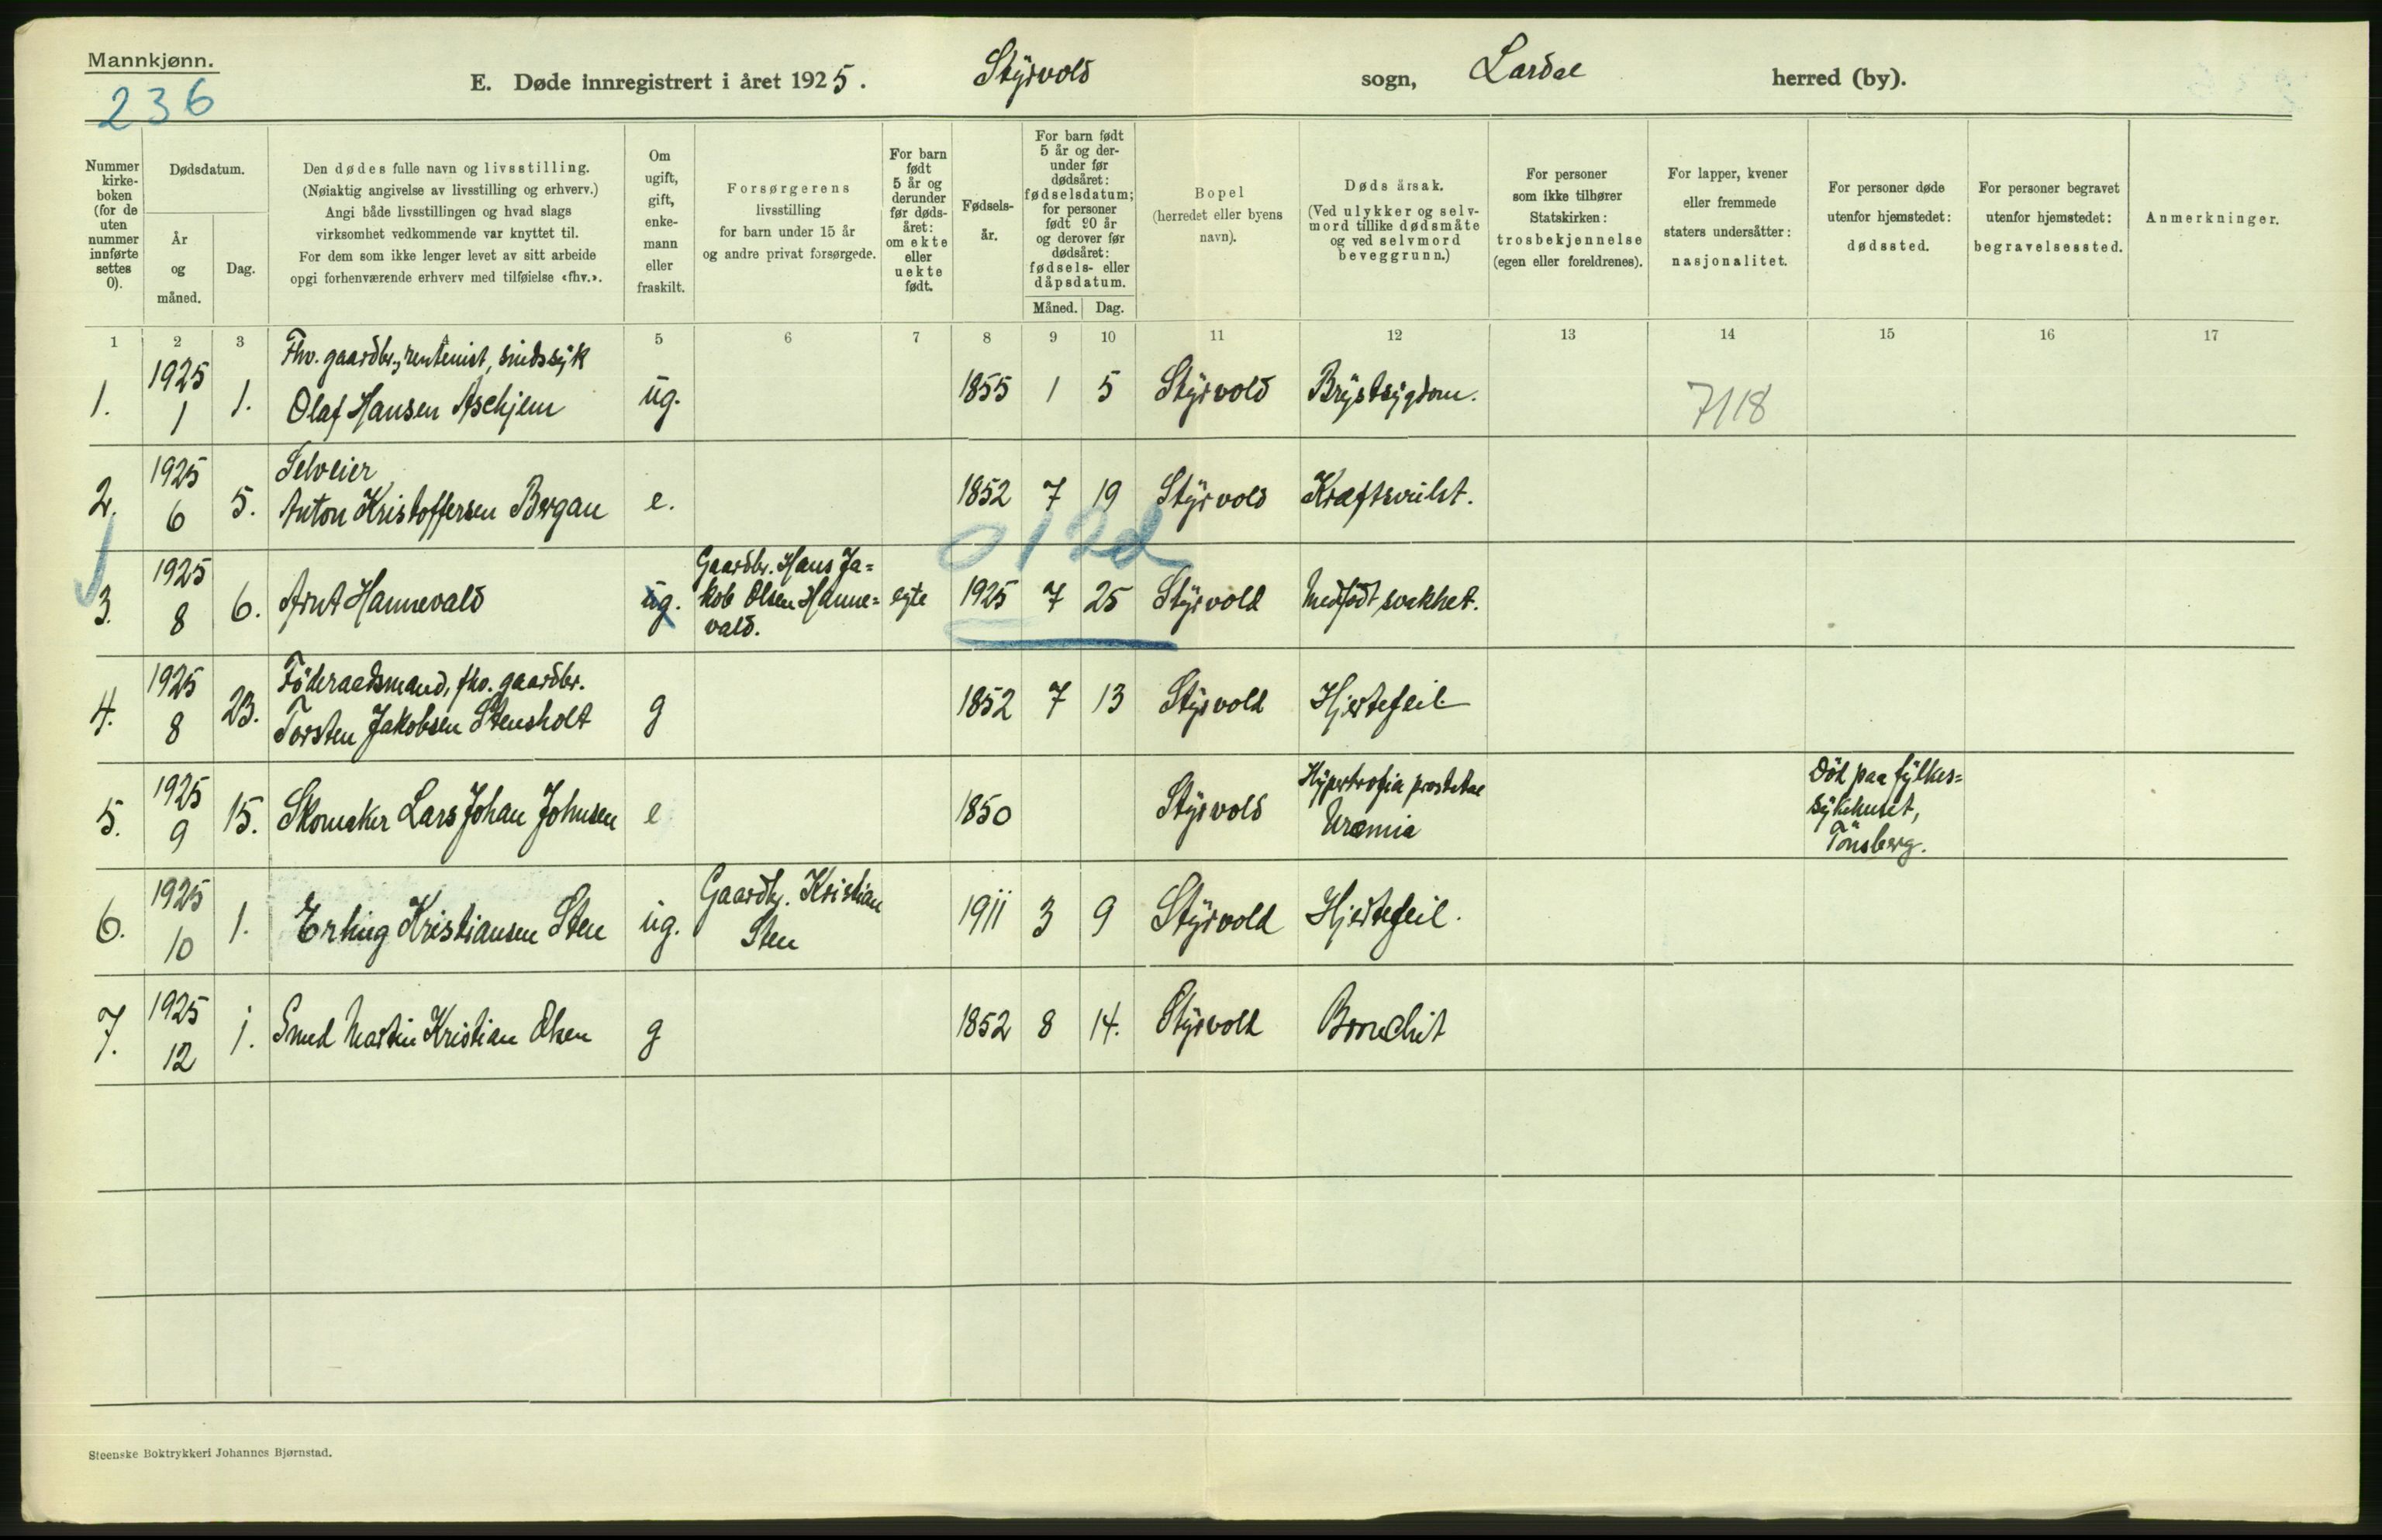 Mannkjønn.
236
E. Døde innregistrert i året 1925. Styrvold sogn, Lardal herred (by).
Nummer kirke-boken (for de uten nummer innførte settes 0).
Dødsdatum.
År og måned.
Dag.
Den dødes fulle navn og livsstilling.
(Nøiaktig angivelse av livsstilling og erhverv.)
Angi både livsstillingen og hvad slags
virksomhet vedkommende var knyttet til.
For dem som ikke lenger levet av sitt arbeide
opgi forhenværende erhverv med tilføielse «fhv.».
Om ugift, gift, enke-mann eller fraskilt.
Forsørgerens
livsstilling
for barn under 15 år
og andre privat forsørgede.
For barn født 5 år og derunder før døds-året: om ekte eller uekte født.
Fødsels-år.
For barn født 5 år og der-under før dødsåret: fødselsdatum; for personer født 90 år og derover før dødsåret: fødsels- eller dåpsdatum.
Måned. Dag.
Bopel
(herredet eller byens
navn).
Dødsårsak.
(Ved ulykker og selv-
mord tillike dødsmåte
og ved selvmord
beveggrunn.)
For personer
som ikke tilhører
Statskirken:
trosbekjennelse
(egen eller foreldrenes).
For lapper, kvener
eller fremmede
staters undersåtter:
nasjonalitet.
For personer døde
utenfor hjemstedet:
dødssted.
For personer begravet
utenfor hjemstedet:
begravelsessted.
Anmerkninger.
1 2 3 5 6 7 8 9 10 11 12 13 14 15 16 17
Fhv. gaardbr., rentenist, sindssyk
1. 1925 1 1. Olaf Hansen Aschjem ug. 1855 1 5 Styrvold Brystsygdom. 7/18
Selveier
2. 1925 6 5. Anton Kristoffersen Bergan e. 1852 7 19 Styrvold Kræftsvulst.
012d
3. 1925 8 6. Arnt Hannevald ug. Gaardbr. Hans Ja=
kob Olsen Hanne=
vald. egte 1925 7 25 Styrvold Medfødt svakhet.
Föderaadsmand, fhv. gaardbr.
4. 1925 8 23. Torsten Jakobsen Stensholt g 1852 7 13 Styrvold Hjertefeil
5. 1925 9 15. Skomaker Lars Johan Johnsen e 1850 Styrvold Hypertrofia prostatae
Uræmia
Död paa fylkes=
sykehuset,
Tönsberg.
6. 1925 10 1. Erling Kristiansen Sten ug. Gaardbr. Kristian
Sten 1911 3 9 Styrvold Hjertefeil.
7. 1925 12 1. Smed Martin Kristian Olsen g 1852 8 14. Styrvold Bronchit
Steenske Boktrykkeri Johannes Bjørnstad.